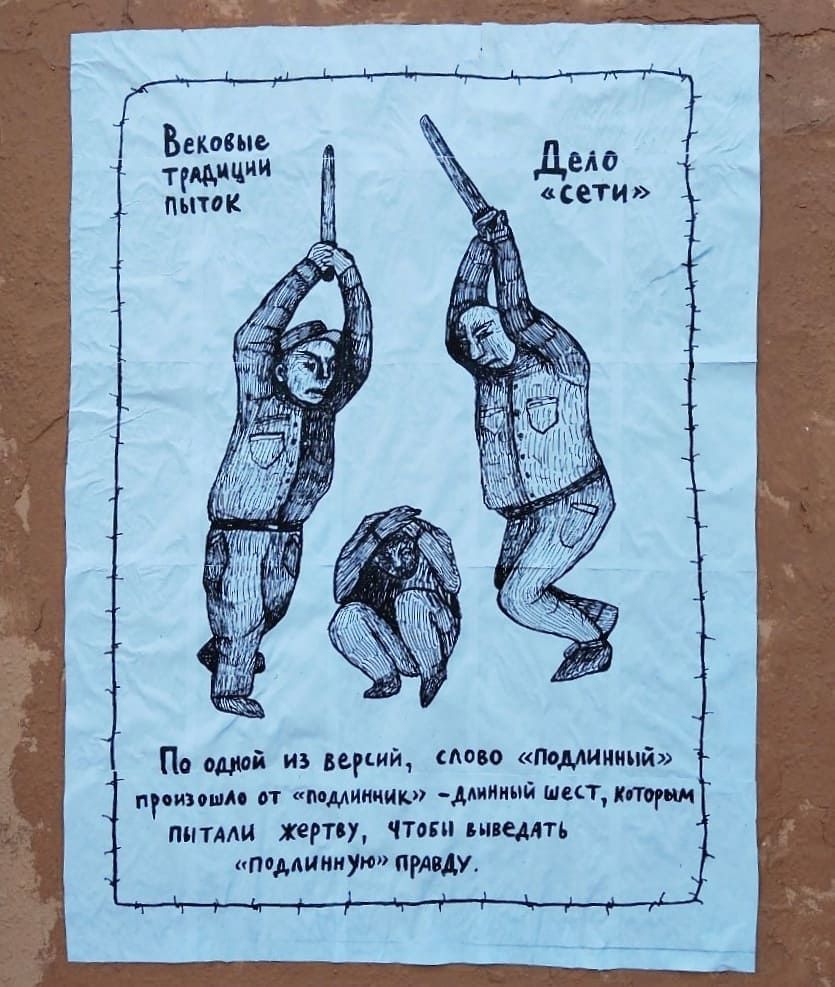 Вековые
традиции
пыток
Дело
«сети»
По одной из версий, слово «подлинный»
произошло от «подлинник» - длинный шест, которым
пытали жертву, чтобы выведать
«подлинную» правду.